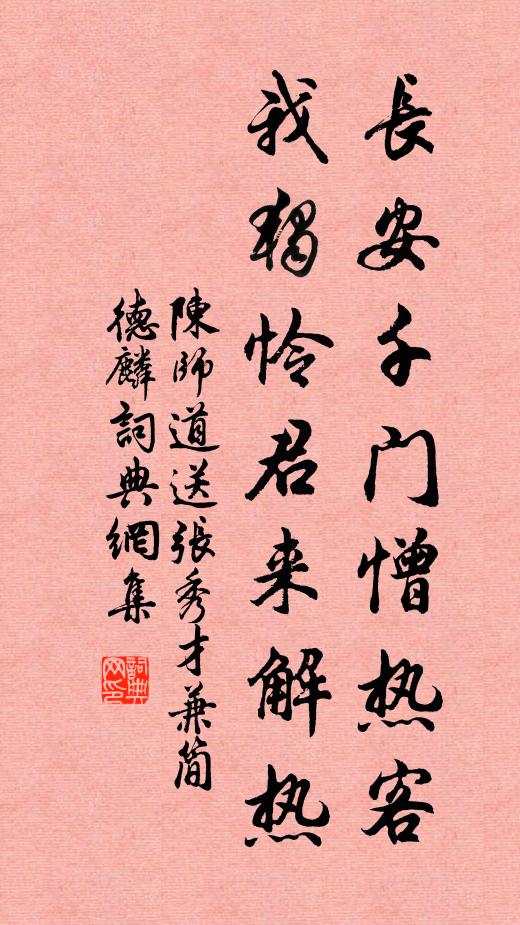 長安千门憎热客
我獨怜君来解热
陳師道送張秀才兼簡
德麟詞典網集
詞典网印